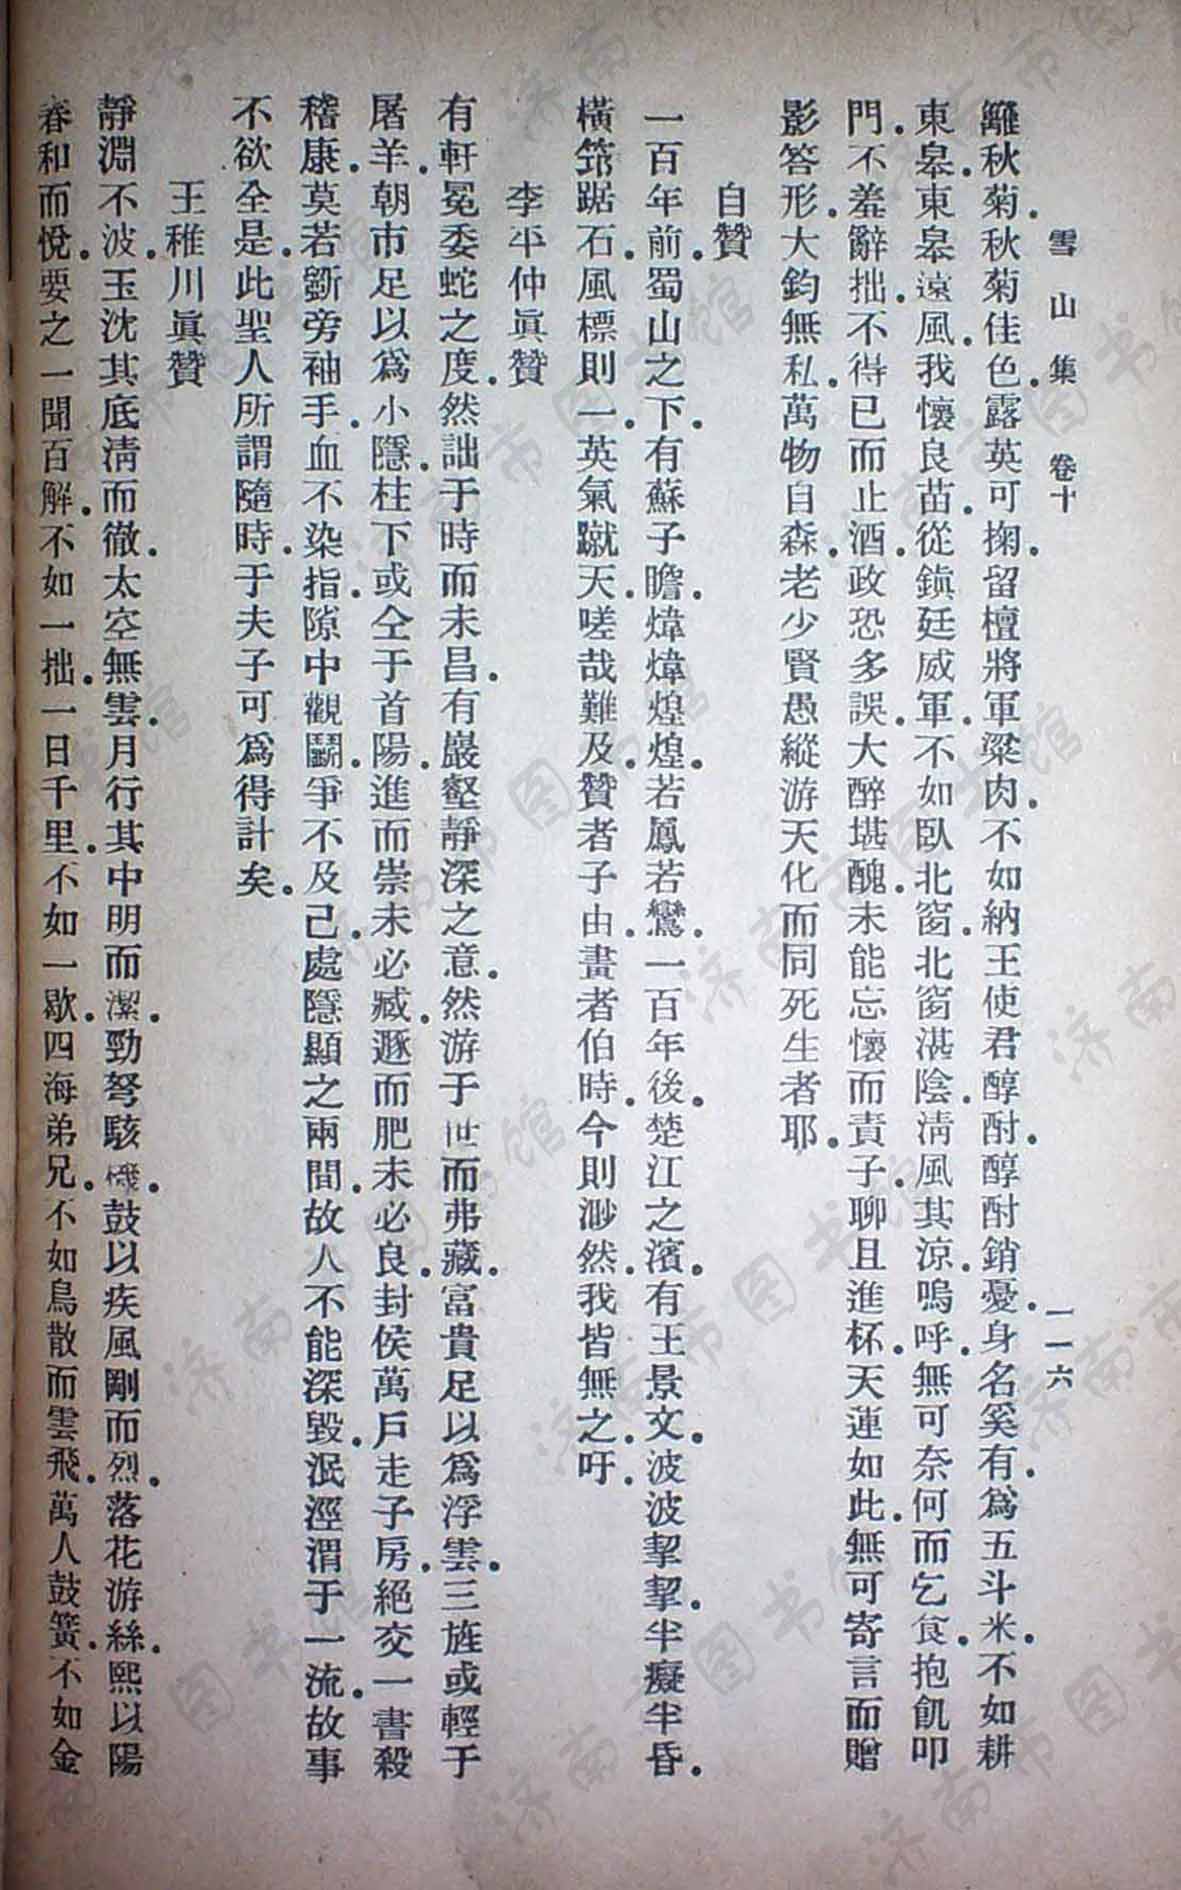 雪山集 卷十 一一六
籬秋菊.秋菊佳色.露英可掬.留檀將軍粱肉.不如納王使君醇酎.醇酎銷憂.身名奚有.爲五斗米.不如耕
東皋.東皋遠風.我懷良苗.從鎮廷威軍.不如臥北窗.北窗湛陰.淸風其涼.嗚呼.無可奈何而乞食.抱飢叩
門.不羞辭拙.不得已而止酒.酒政恐多誤.大醉堪醜.未能忘懷而責子.聊且進杯.天蓮如此.無可寄言而贈
影答形.大鈞無私.萬物自森.老少賢愚縱游天化而同死生者耶.
自贊
一百年前.蜀山之下.有蘇子瞻.煒煒煌煌.若鳳若鸞.一百年後.楚江之濱.有王景文.波波挈挈.半癡半昏.
橫筇踞石.風標則一.英氣蹴天.嗟哉難及.贊者子由.畫者伯時.今則渺然.我皆無之.吁.
李平仲眞贊
有軒冕委蛇之度.然詘于時而未昌.有巖壑靜深之意.然游于世而弗藏.富貴足以爲浮雲.三旌或輕于
屠羊.朝市足以爲小隱.柱下或仝于首陽.進而崇未必臧.遯而肥未必良.封侯萬戶走子房.絕交一書殺
稽康.莫若斵旁袖手.血不染指.隙中觀鬭.爭不及己.處隱顯之兩間.故人不能深毀.泯涇渭于一流.故事
不欲全是.此聖人所謂隨時.于夫子可爲得計矣.
王稚川眞贊
靜淵不波.玉沈其底淸而徹.太空無雲.月行其中明而潔.勁弩駭機.鼓以疾風剛而烈.落花游絲.熙以陽
春和而悅.要之一聞百解.不如一拙.一日千里.不如一歇.四海弟兄.不如鳥散而雲飛.萬人鼓簧.不如金